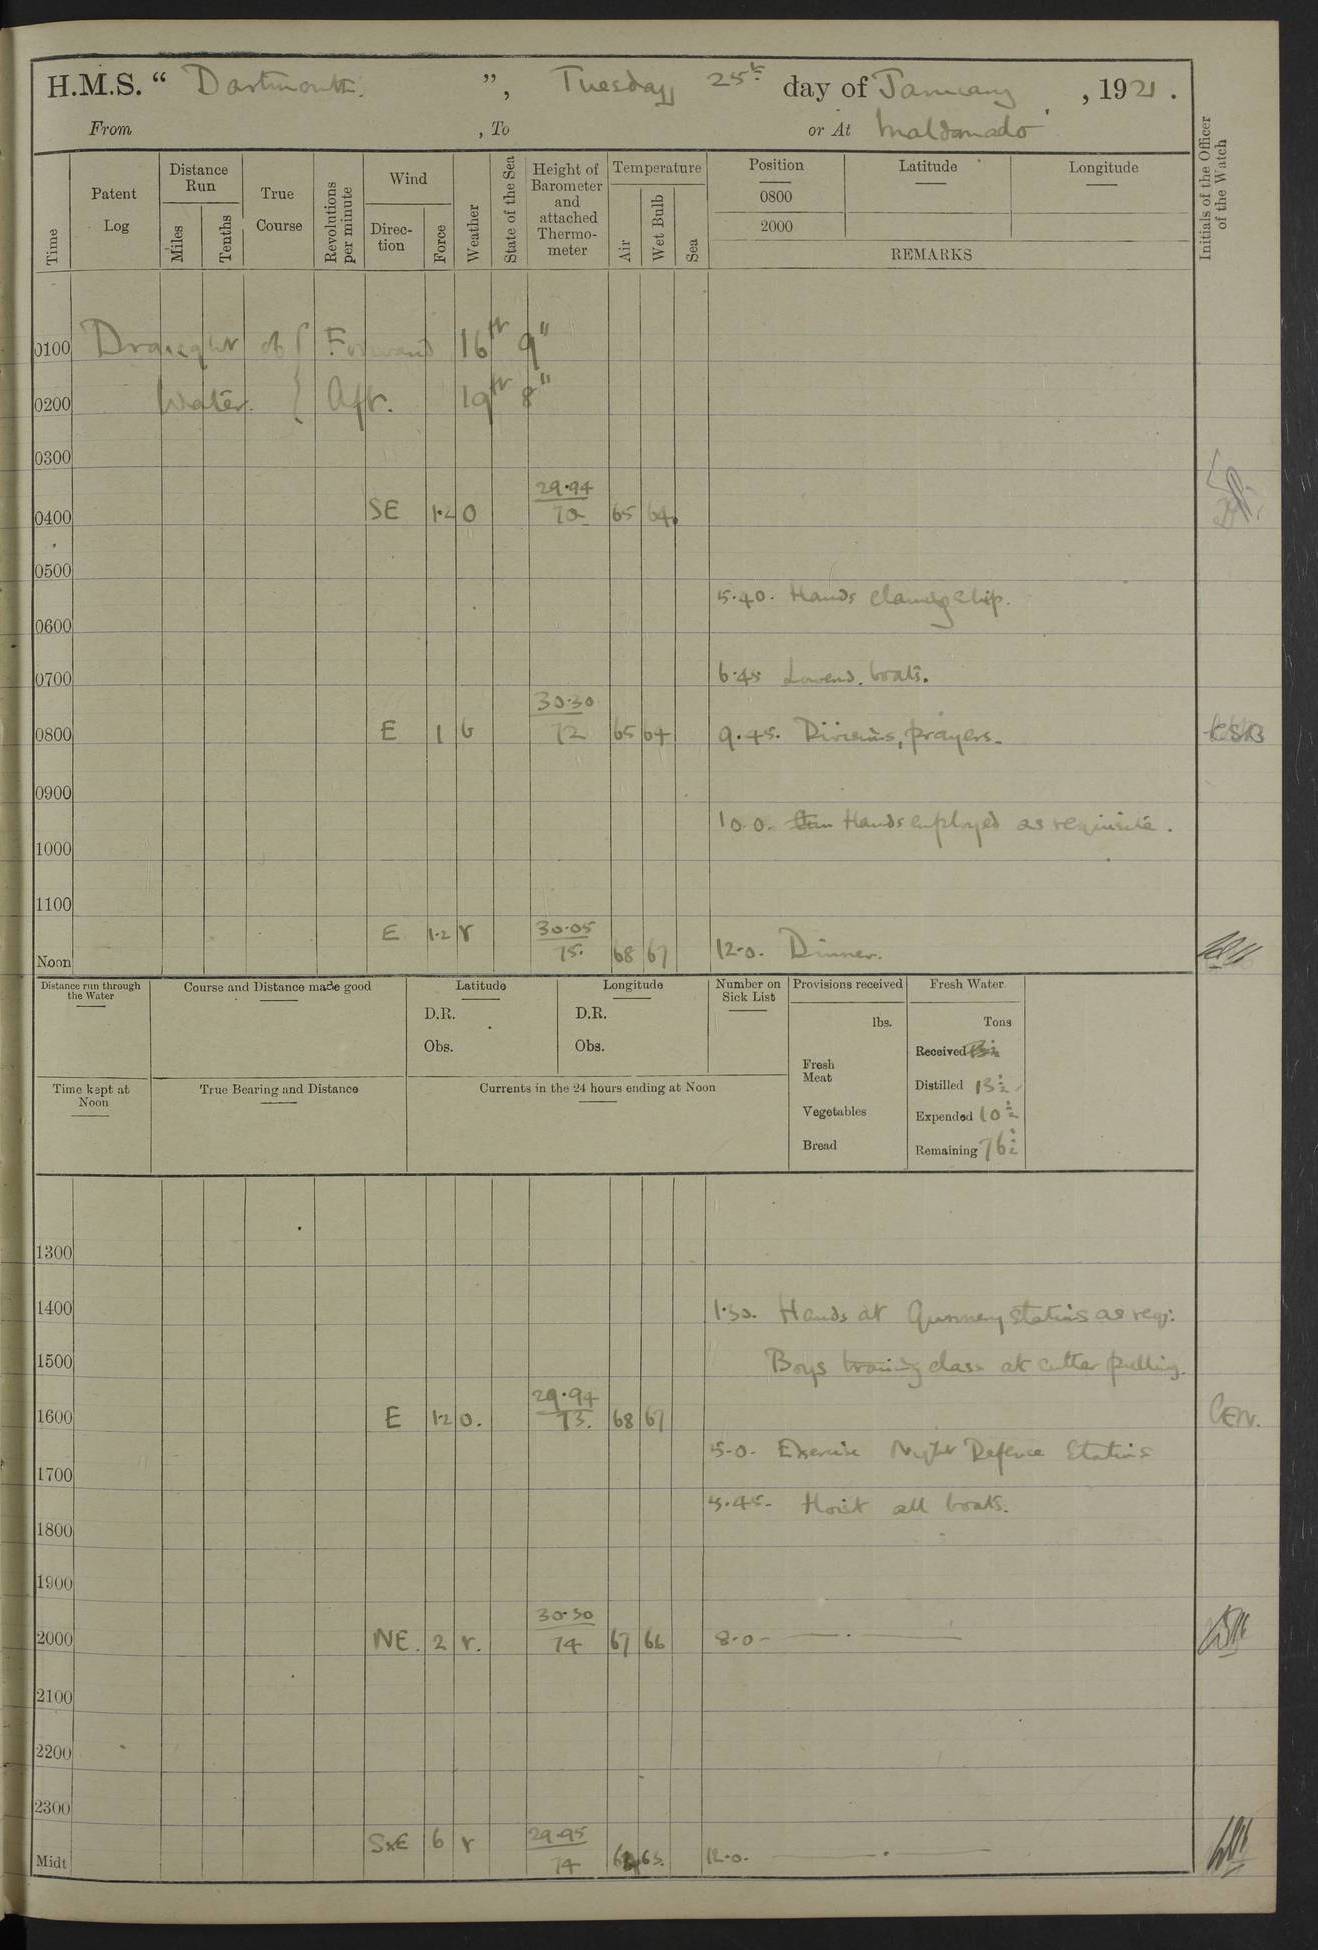 H.M.S. “ Dartmouth. ”, Tuesday 25th day of January, 1921.
From , To or At Maldonado
Initials of the Officer of the Watch
Time
Patent Log
Distance Run
Miles
Tenths
True Course
Revolutions per minute
Wind
Direction
Force
Weather
State of the Sea
Height of Barometer and attached Thermometer
Temperature
Air
Wet Bulb
Sea
Position
Latitude
Longitude
0800
2000
REMARKS
0100 Draught of { Forward 16ft 9"
0200 Water. { Aft. 19ft 8"
0300
29.94
0400 SE 1.2 0 70 65 64
0500
5.40. Hands cleaning ship.
0600
6.45 Lowered boats.
0700
30.30
0800 E 1 b 72 65 64 9.45. Divisions, prayers.
0900
10.0. Hands employed as requisite.
1000
1100
E 1.2 r 30.05
Noon 75. 68 67 12.0. Dinner.
Distance run through the Water
Course and Distance made good
Latitude
D.R.
Obs.
Longitude
D.R.
Obs.
Number on Sick List
Provisions received
lbs.
Fresh Meat
Vegetables
Bread
Fresh Water.
Tons
Received
Distilled 13½
Expended 10½
Remaining 76½
Time kept at Noon
True Bearing and Distance
Currents in the 24 hours ending at Noon
1300
1400 1.30. Hands at Gunnery stations as req:
1500 Boys training class at cutter pulling.
29.94
1600 E 1.2 0. 73. 68 67 CEN.
5.0. Exercise Night Defence Stations
1700
5.45. Hoist all boats.
1800
1900
30.30
2000 NE. 2 r. 74 67 66 8.0 —
2100
2200
2300
SxE 6 r 29.95
Midt 74 65. 12.0. —